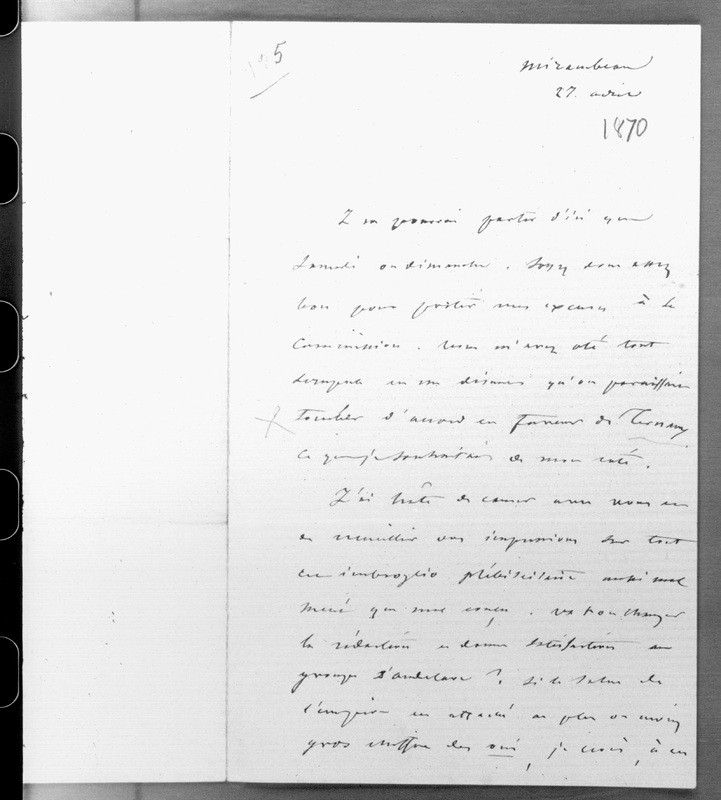 125
Mirambeau
27. avril
1870
Je ne pourrai partir d'ici que
Samedi ou dimanche. Soyez donc assez
bon pour porter mes excuses à la
Commission. Vous m'avez ôté tout
scrupule en me disant qu'on paraissait
tomber d'accord en faveur de Ternaux
ce que je souhaitais de mon côté.
J'ai hâte de causer avec vous et
de recueillir vos impressions sur tout
cet imbroglio plébiscitaire aussi mal
mené que mal conçu. Va-t-on changer
la rédaction et donner satisfaction au
groupe d'Andelarre ? Si le salut de
l'empire est attaché au plus ou moins
gros chiffre des oui, je crois, à ce